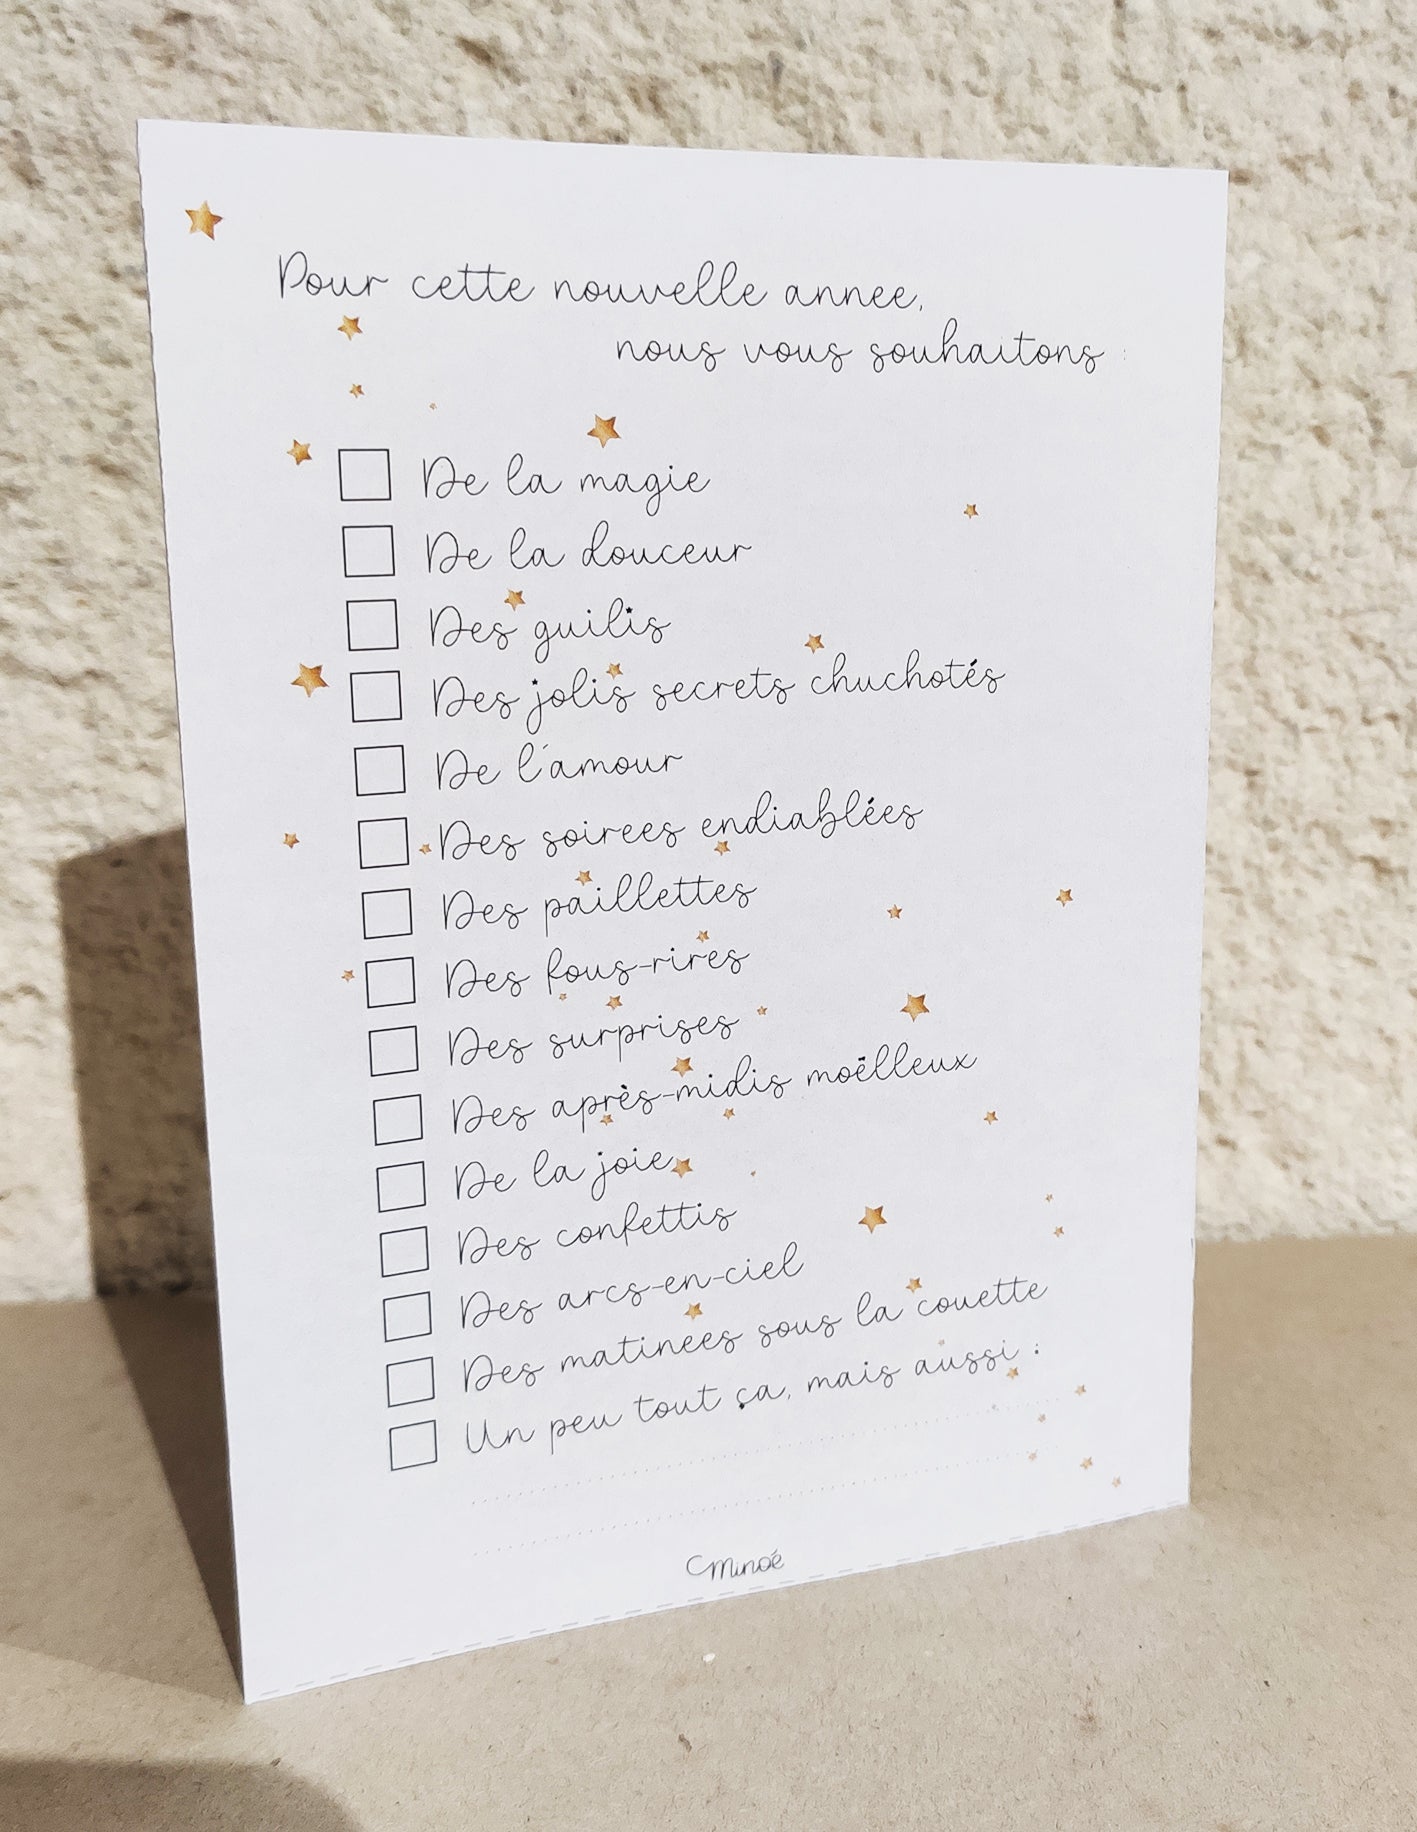 Pour cette nouvelle annee,
nous vous souhaitons :
De la magie
De la douceur
Des guilis
Des jolis secrets chuchotés
De l'amour
Des soirees endiablées
Des paillettes
Des fous-rires
Des surprises
Des après-midis moëlleux
De la joie
Des confettis
Des arcs-en-ciel
Des matinees sous la couette
Un peu tout ça, mais aussi :
Minoé